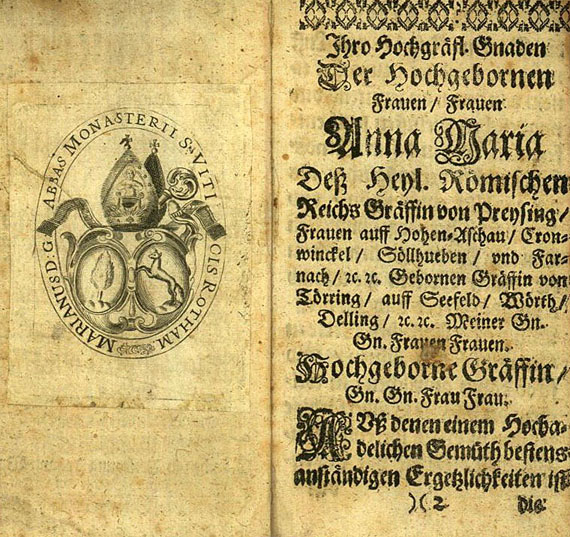 MARIANUS D: G. ABBAS MONASTERII S. VITI CIS ROTHAM
Ihro Hochgräfl. Gnaden
Der Hochgebornen
Frauen / Frauen
Anna Maria
Deß Heyl. Römischen
Reichs Gräffin von Preysing /
Frauen auff Hohen-Aschau / Cron-
winckel / Söllhueben / vnd Far-
nach / ꝛc. ꝛc. Gebornen Gräffin von
Törring / auff Seefeld / Wörth /
Delling / ꝛc. ꝛc. Meiner Gn.
Gn. Frauen Frauen.
Hochgeborne Gräffin /
Gn. Gn. Frau Frau.
AUß denen einem Hocha-
delichen Gemüth bestens
anständigen Ergetzlichkeiten ist
)( 2 die